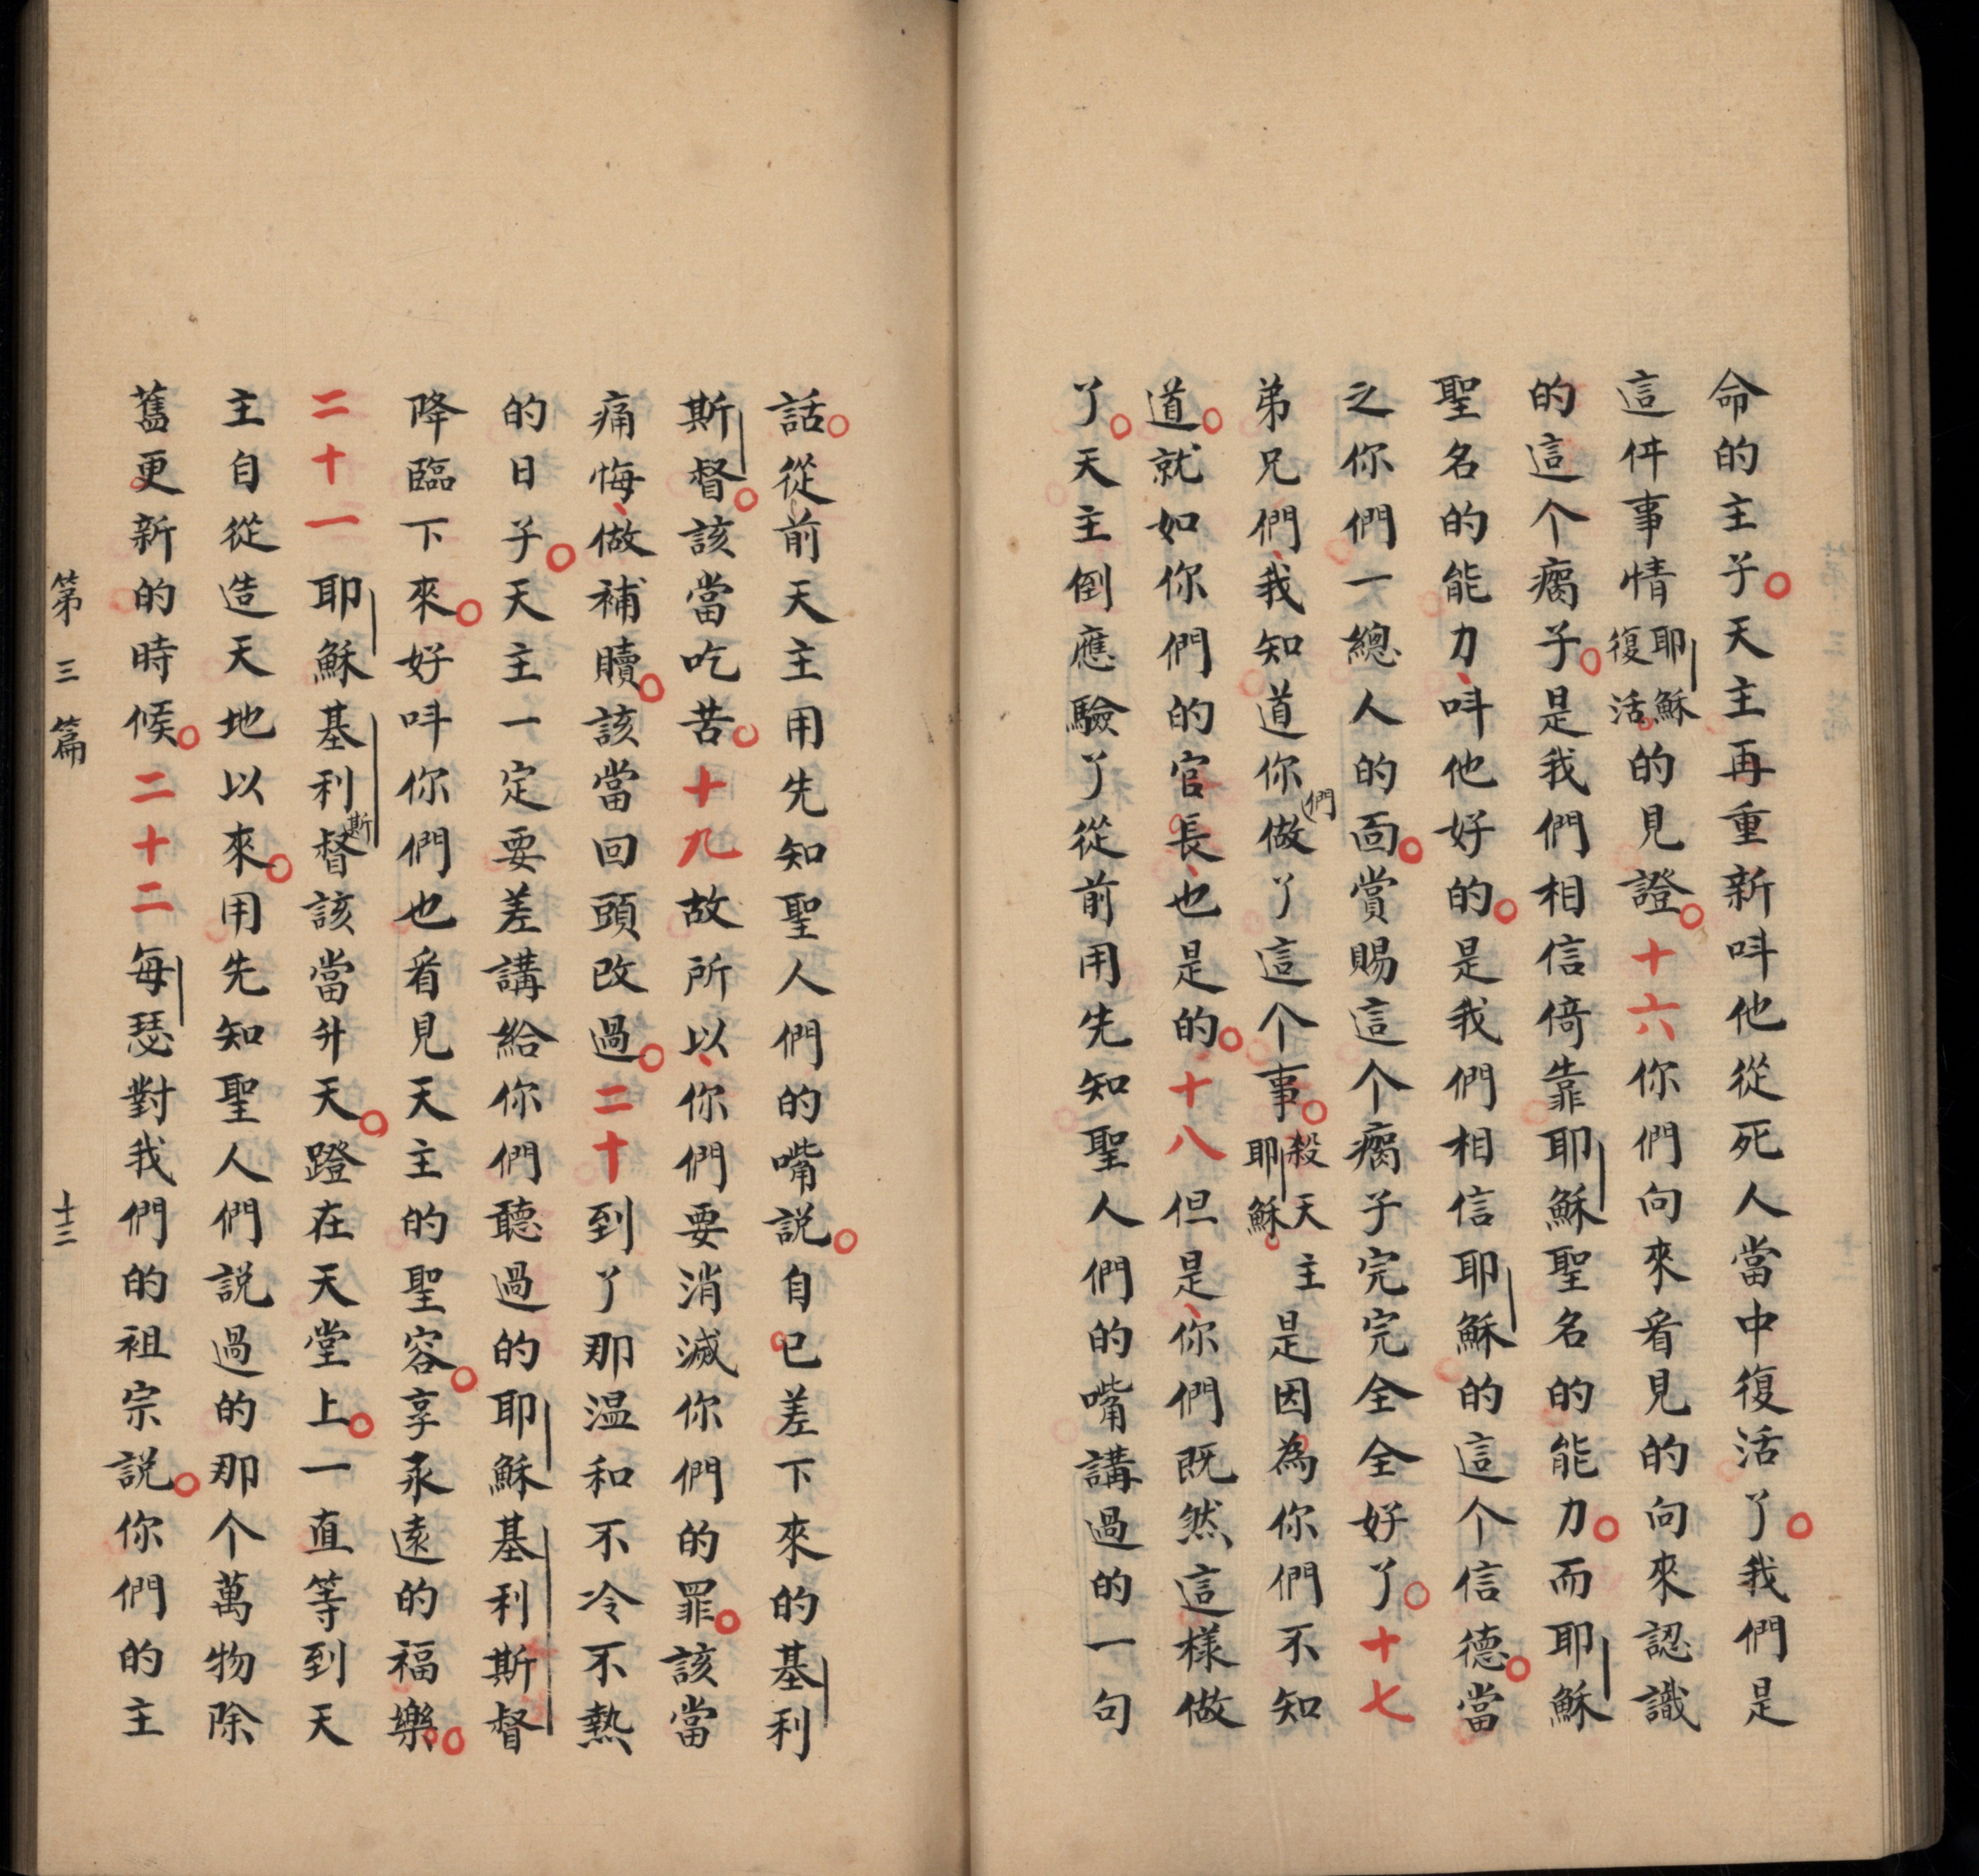 命的主子。天主再重新呌他從死人當中復活了。我們是
這件事情耶穌復活。的見證。十六你們向來看見的向來認識
的這个瘸子。是我們相信倚靠耶穌聖名的能力。而耶穌
聖名的能力、呌他好的。是我們相信耶穌的這个信德。當
之你們一總人的面。賞賜這个瘸子完完全全好了。十七
弟兄們、我知道你們做了這个事。殺天主耶穌。是因為你們不知
道。就如你們的官長、也是的。十八但是、你們既然這樣做
了。天主倒應驗了從前用先知聖人們的嘴講過的一句
話。從前天主用先知聖人們的嘴説。自己差下來的基利
斯督。該當吃苦。十九故所以、你們要消滅你們的罪。該當
痛悔、做補贖。該當回頭改過。二十到了那温和不冷不熱
的日子。天主一定要差講給你們聽過的耶穌基利斯督
降臨下來。好呌你們也看見天主的聖容。享永遠的福樂。
二十一耶穌基利斯督該當升天。蹬在天堂上。一直等到天
主自從造天地以來。用先知聖人們説過的那个萬物除
舊更新的時候。二十二每瑟對我們的祖宗説。你們的主
第三篇 十三